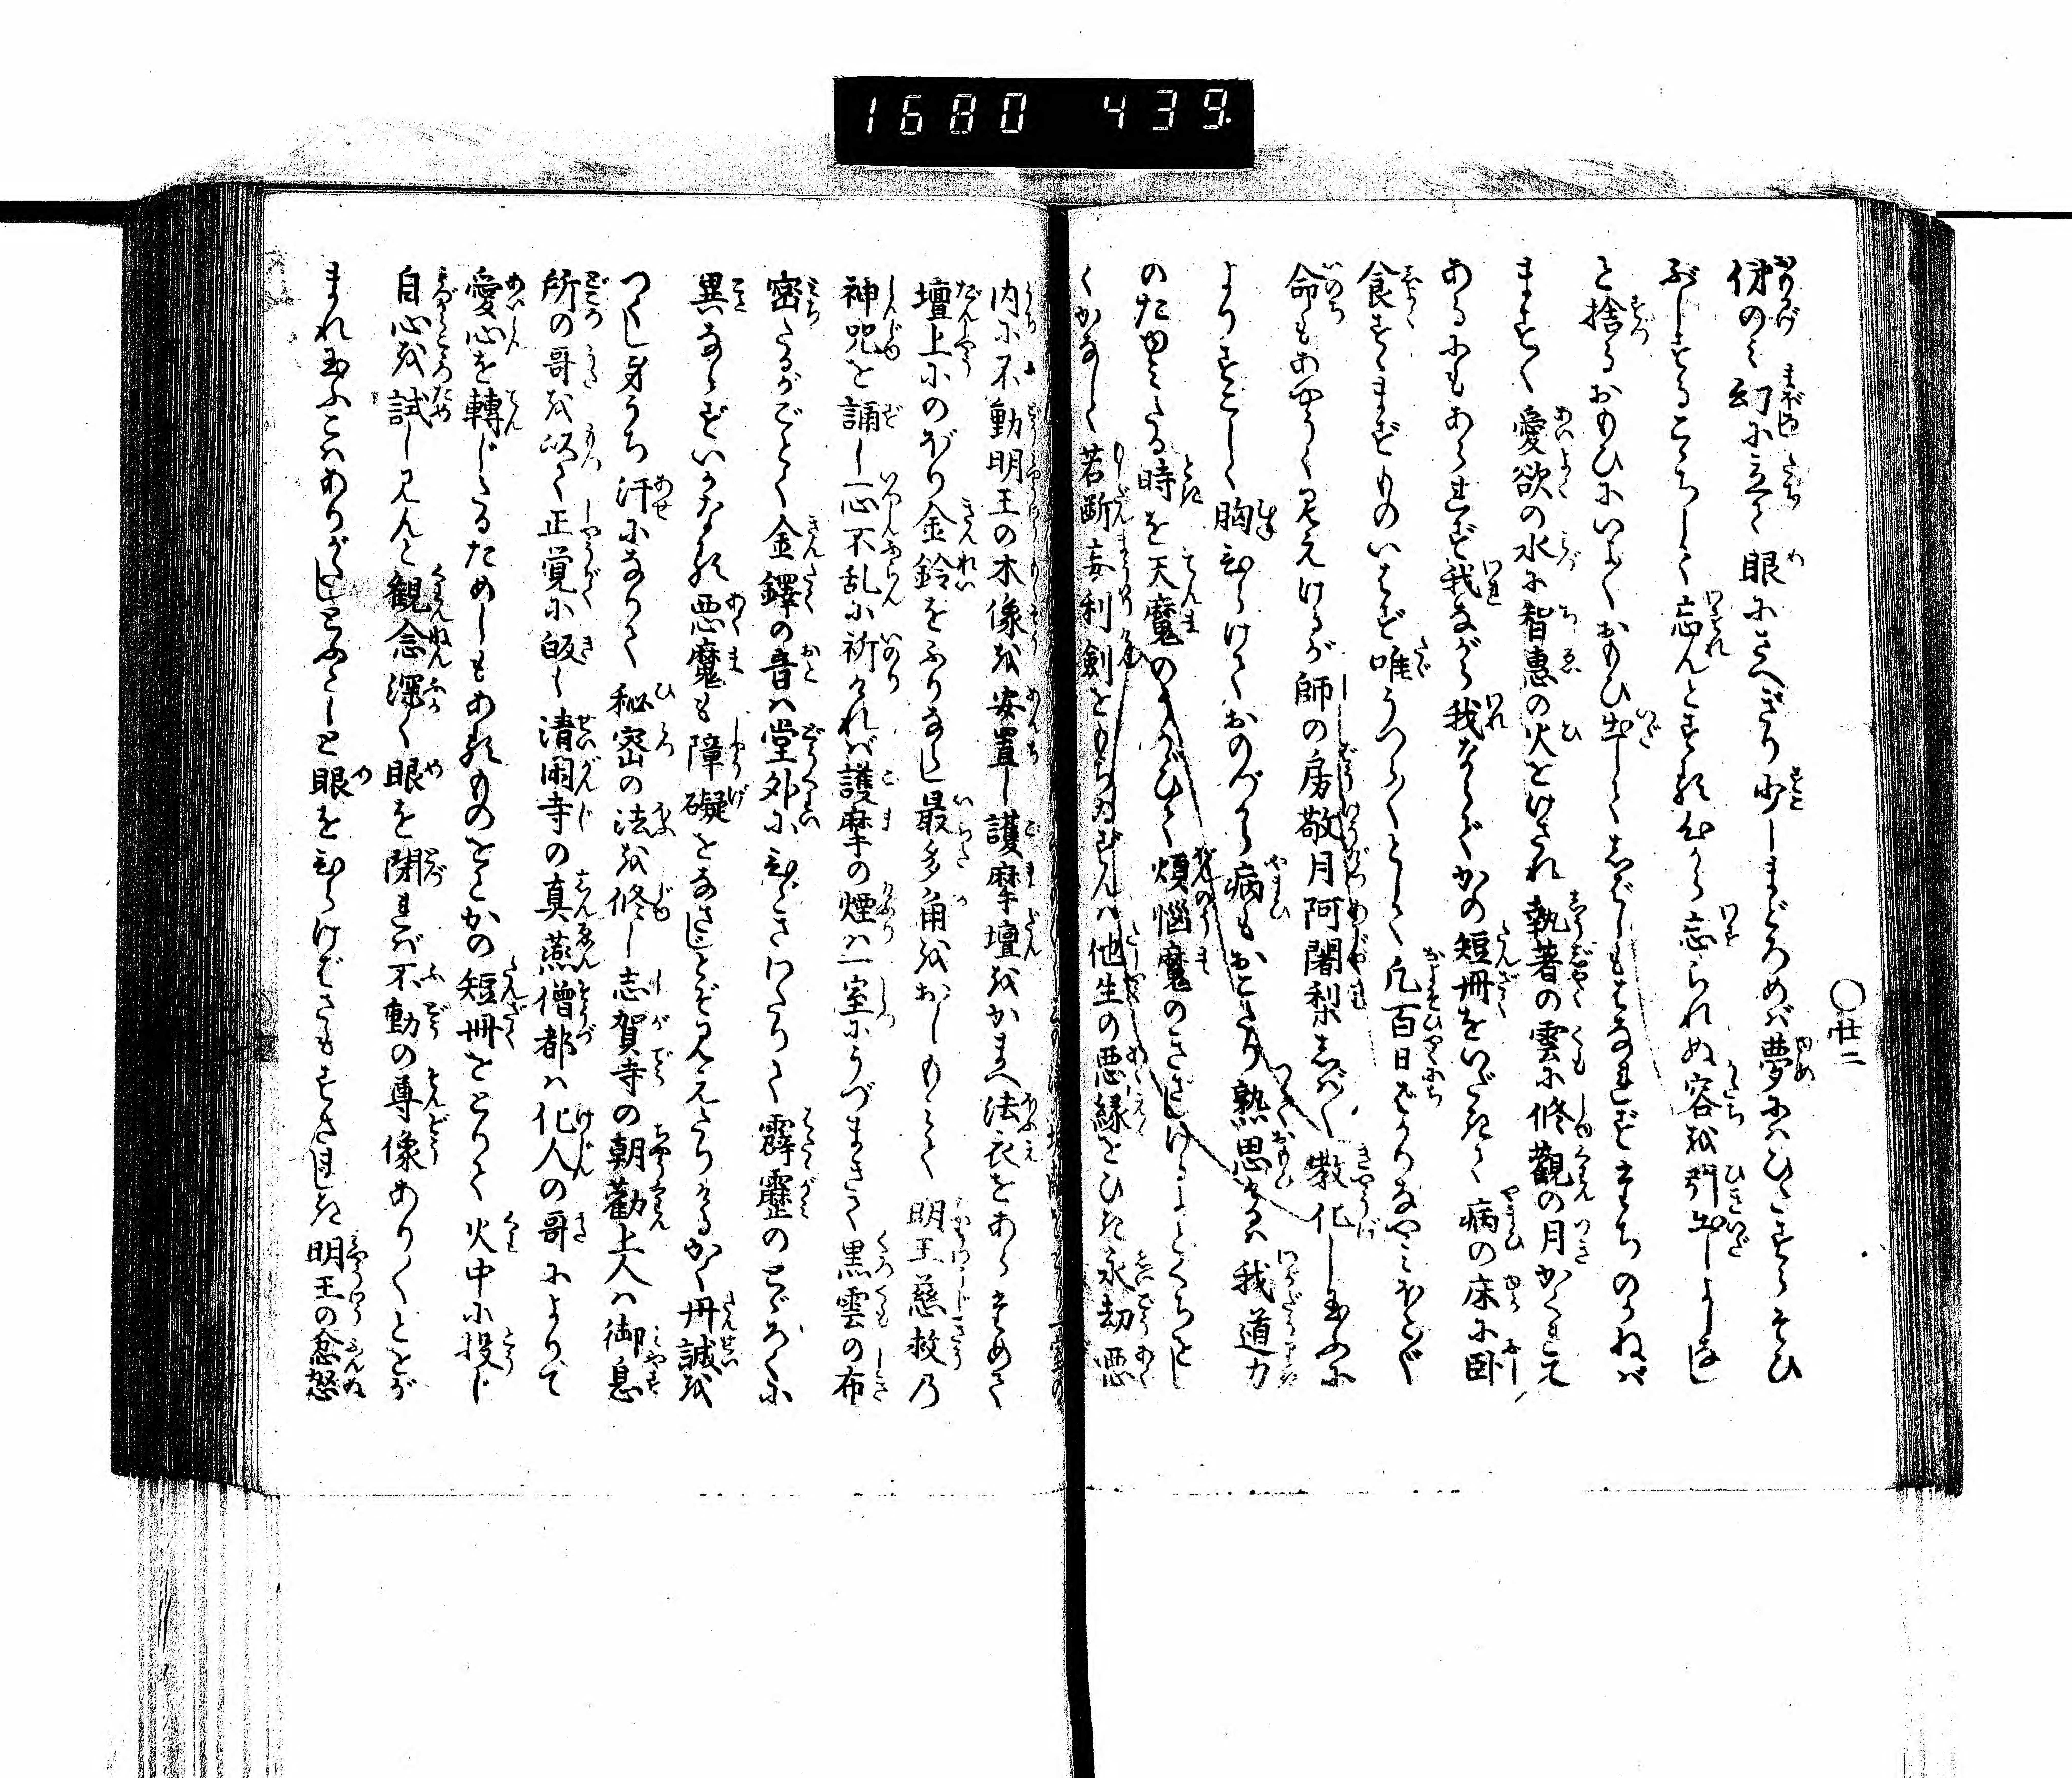 1680 439.
〇廿二
俤のミ幻に立て眼にさへぎり少しまどろめバ夢にハひたすらそひ
ぶしするこゝちして忘んとすれバから忘られぬ容を引出しよしな
と捨るおもひにいよ〳〵おもひ出してしばしもはなれず立ちのかねバ
ますます愛欲の水に智恵の火をけされ執著の雲に修観の月かくれて
あるにもあられず我ながら我ならでかの短冊をいだきて病の床に臥
食すゝまずものいはず唯うつら〳〵として凡百日ばかりなやミほとんど
命もあやうく見えけるが師の房敬月阿闍梨しば〳〵教化し玉ふに
よりすこし胸ひらけておのづから病もおこたり熟思るハ我道力
のたゆミたる時を天魔のうかゞひて煩悩魔のさまたげけるよとくちを
くかなしく若断妄利剣をもちゐずんハ他生の悪縁をひき永劫悪
内に不動明王の木像を安置し護摩壇をかまへ法衣をあらためて
壇上にのぼり金鈴をふりならし最多角をおしもミて明王慈救乃
神咒を誦し一心不乱に祈ければ護摩の煙ハ一室にうづまきて黒雲の布
密たるがごとく金鐸の音ハ堂外にひゞきわたりて霹靂のとゞろくに
異ならずいかなる悪魔も障碍をなさじとぞ見えたりけるかく丹誠を
つくし身うち汗になりて秘密の法を修し志賀寺の朝勧上人ハ御息
所の哥を以て正覚に皈し清閑寺の真燕僧都ハ化人の哥によりて
愛心を轉じたるためしもあるものをとかの短冊をとりて火中に投じ
自心を試し見んと観念深く眼を閉れバ不動の尊像あり〳〵ととが
まれ玉ふこハありがたしとふと眼をひらけばさもすさまじき明王の忿怒